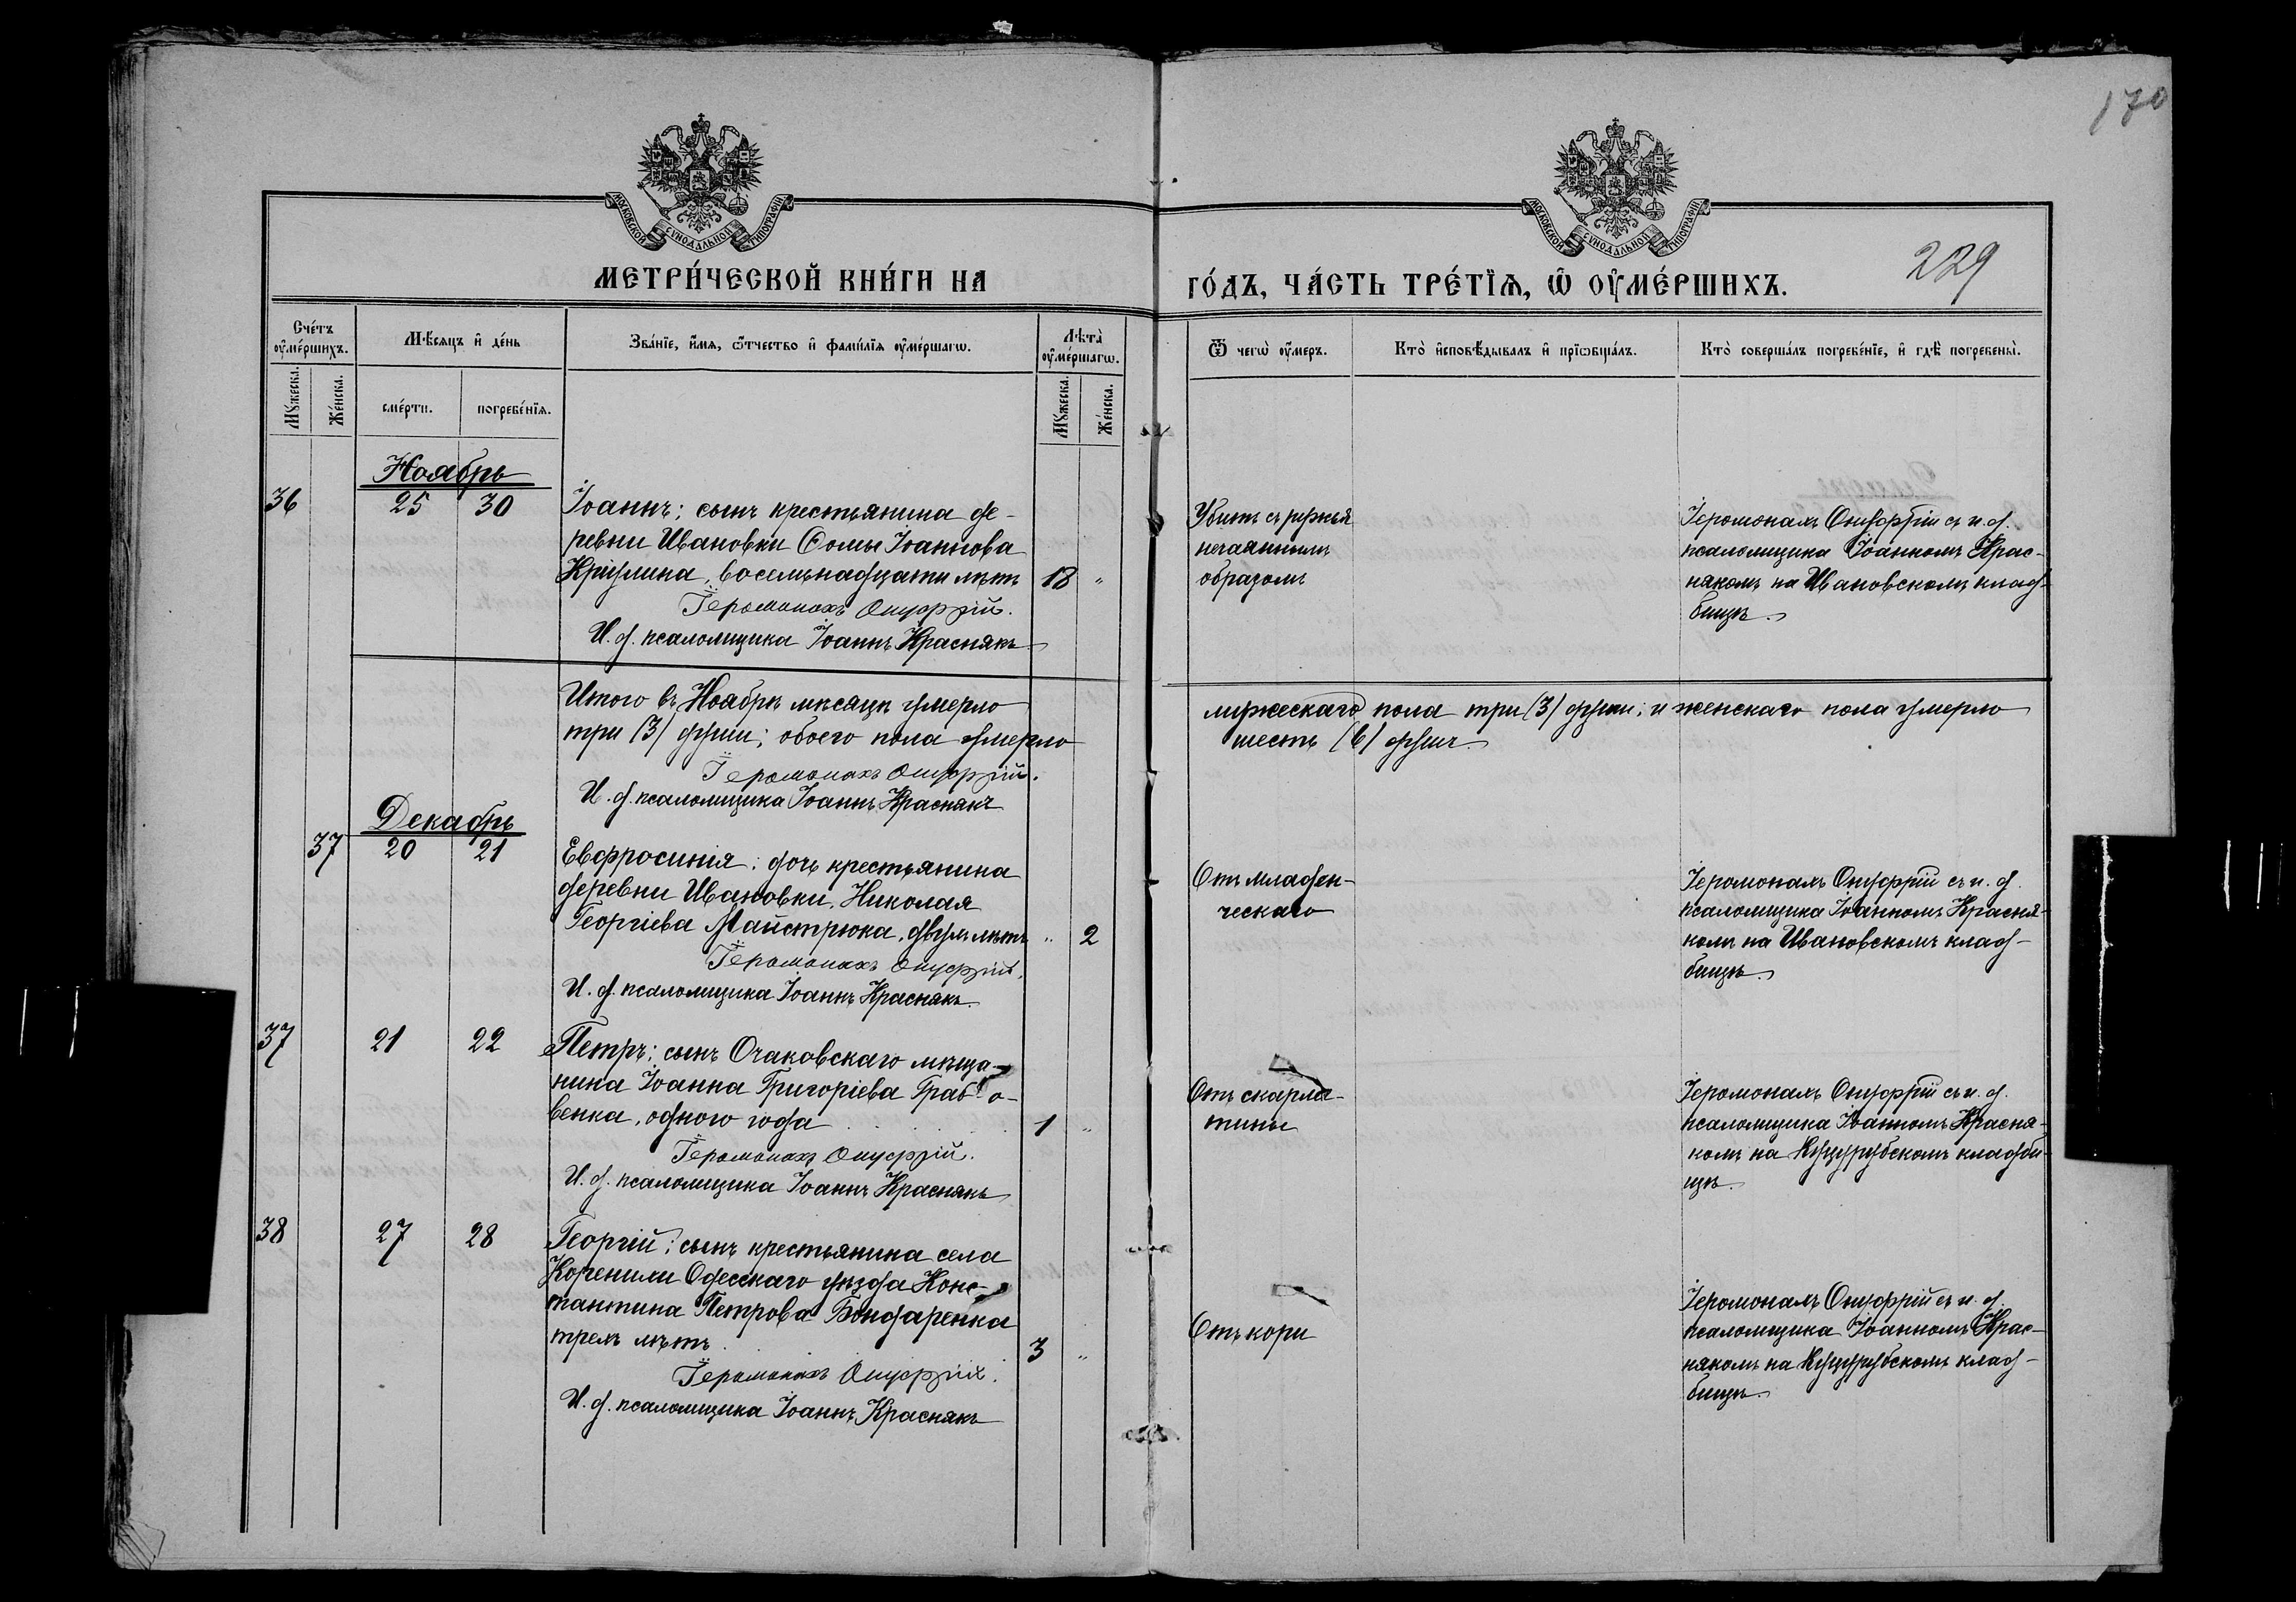 170
МОСКОВСКОЙ СѴНОДАЛЬНОЙ ТИПОГРАФІИ
МОСКОВСКОЙ СѴНОДАЛЬНОЙ ТИПОГРАФІИ
229
МЕТРИ́ЧЕСКОЙ КНИ́ГИ НА
ГО́ДЪ, ЧА́СТЬ ТРЕ́ТЇѦ, Ѡ҆ ОУ҆МЕ́РШИХЪ.
Сче́тъ оу҆ме́ршихъ.
Мѣ́сѧцъ и҆ де́нь
Зва́нїе, и҆́мѧ, ѻ҆́тчество и҆ фамѝлїѧ оу҆ме́ршагѡ.
Лѣ́та оу҆ме́ршагѡ.
Ѿ чегѡ̀ оу҆́меръ.
Кто̀ и҆сповѣ́дывалъ и҆ прїѡбща́лъ.
Кто̀ соверша́лъ погребе́нїе, и҆ гдѣ̀ погребены̀.
Мꙋ́жеска.
Же́нска.
сме́рти.
погребе́нїѧ.
Мꙋ́жеска.
Же́нска.
Ноябрь
36 25 30
Іоаннъ; сынъ крестьянина де-
ревни Ивановки Ѳомы Іоаннова
Крулина, восемьнадцати лѣтъ 18 "
Іеромонахъ Онуфрій.
И. д. псаломщика Іоаннъ Краснякъ
Убитъ съ ружья
нечаяннымъ
образомъ
Іеромонахъ Онуфрій съ и. д.
псаломщика Іоанномъ Крас-
някомъ на Ивановскомъ клад-
бищѣ.
Итого въ Ноябрѣ мѣсяцѣ умерло
три (3) души; обоего пола умерло
Іеромонахъ Онуфрій.
И. д. псаломщика Іоаннъ Краснякъ
мужескаго пола три (3) души; и женскаго пола умерло
шесть (6) душъ.
Декабрь
37 20 21
Евфросинія; дочь крестьянина
деревни Ивановки, Николая
Георгіева Майстрюка, двухъ лѣтъ " 2
Іеромонахъ Онуфрій.
И. д. псаломщика Іоаннъ Краснякъ.
Отъ младен-
ческаго
Іеромонахъ Онуфрій съ и. д.
псаломщика Іоанномъ Красня-
комъ на Ивановскомъ клад-
бищѣ.
37 21 22
Петръ; сынъ Очаковскаго мѣща-
нина Іоанна Григоріева Граб о-
венка, одного года 1 "
Іеромонахъ Онуфрій.
И. д. псаломщика Іоаннъ Краснякъ
Отъ скарла-
тины
Іеромонахъ Онуфрій съ и. д.
псаломщика Іоанномъ Красня-
комъ на Куцурубскомъ кладби-
щѣ.
38 27 28
Георгій; сынъ крестьянина села
Коренихи Одесскаго уѣзда Конс-
тантина Петрова Бондаренка
трехъ лѣтъ 3 "
Іеромонахъ Онуфрій.
И. д. псаломщика Іоаннъ Краснякъ
Отъ кори
Іеромонахъ Онуфрій съ и. д.
псаломщика Іоанномъ Крас-
някомъ на Куцурубскомъ клад-
бищѣ.